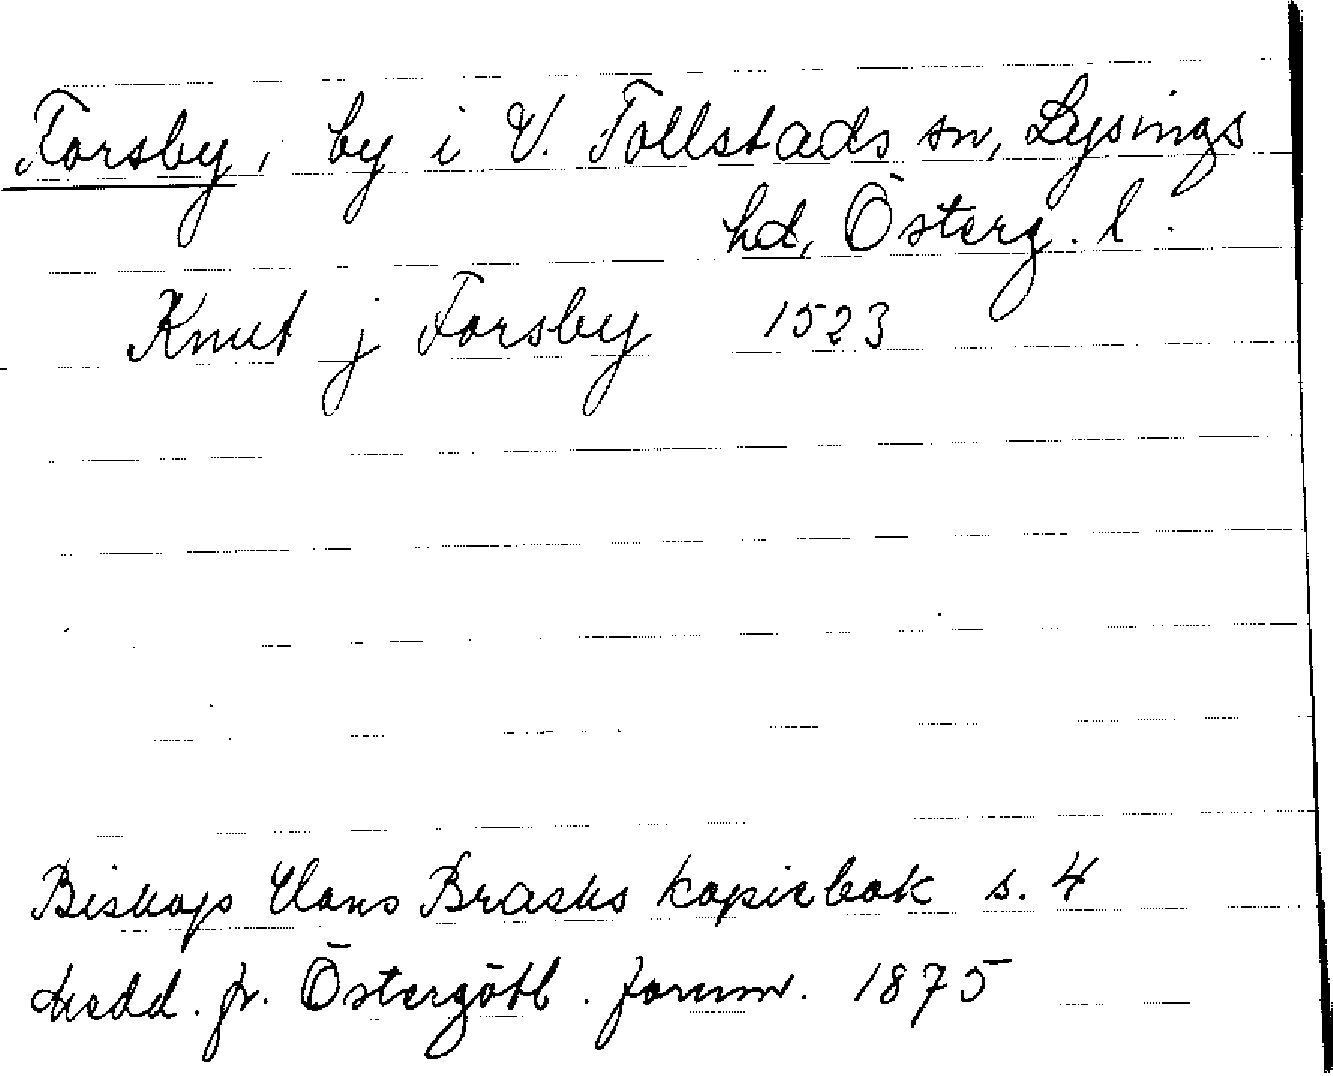 Forsby, by i V. Tollstads sn, Lysings
hd, Österg. l.
Knut j Forsby 1523
Biskop Hans Brasks kopiebok s. 4
Medd. fr. Östergötl. fornm. 1875